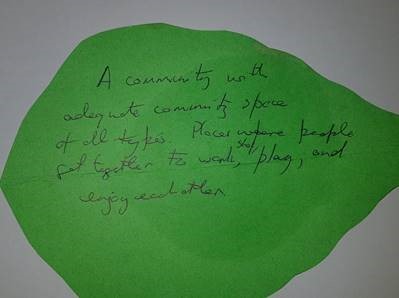 A community with
adequate community space
of all types. Places where people
get together to work, shop, play, and
enjoy each other